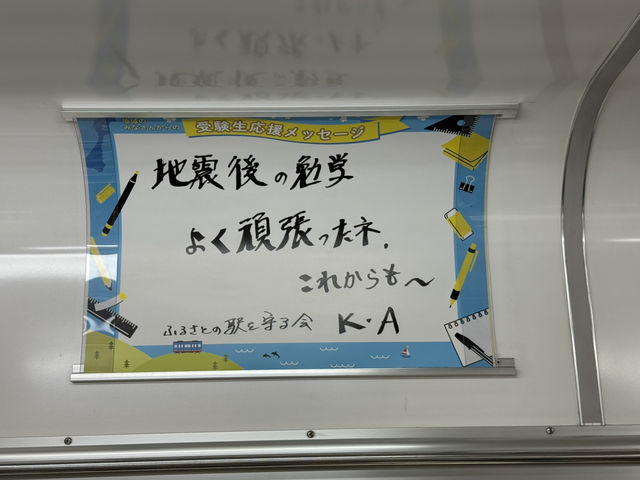 地域の
みなさんからの
受験生応援メッセージ
地震後の勉学
よく頑張ったネ.
これからも〜
ふるさとの駅を守る会 K・A